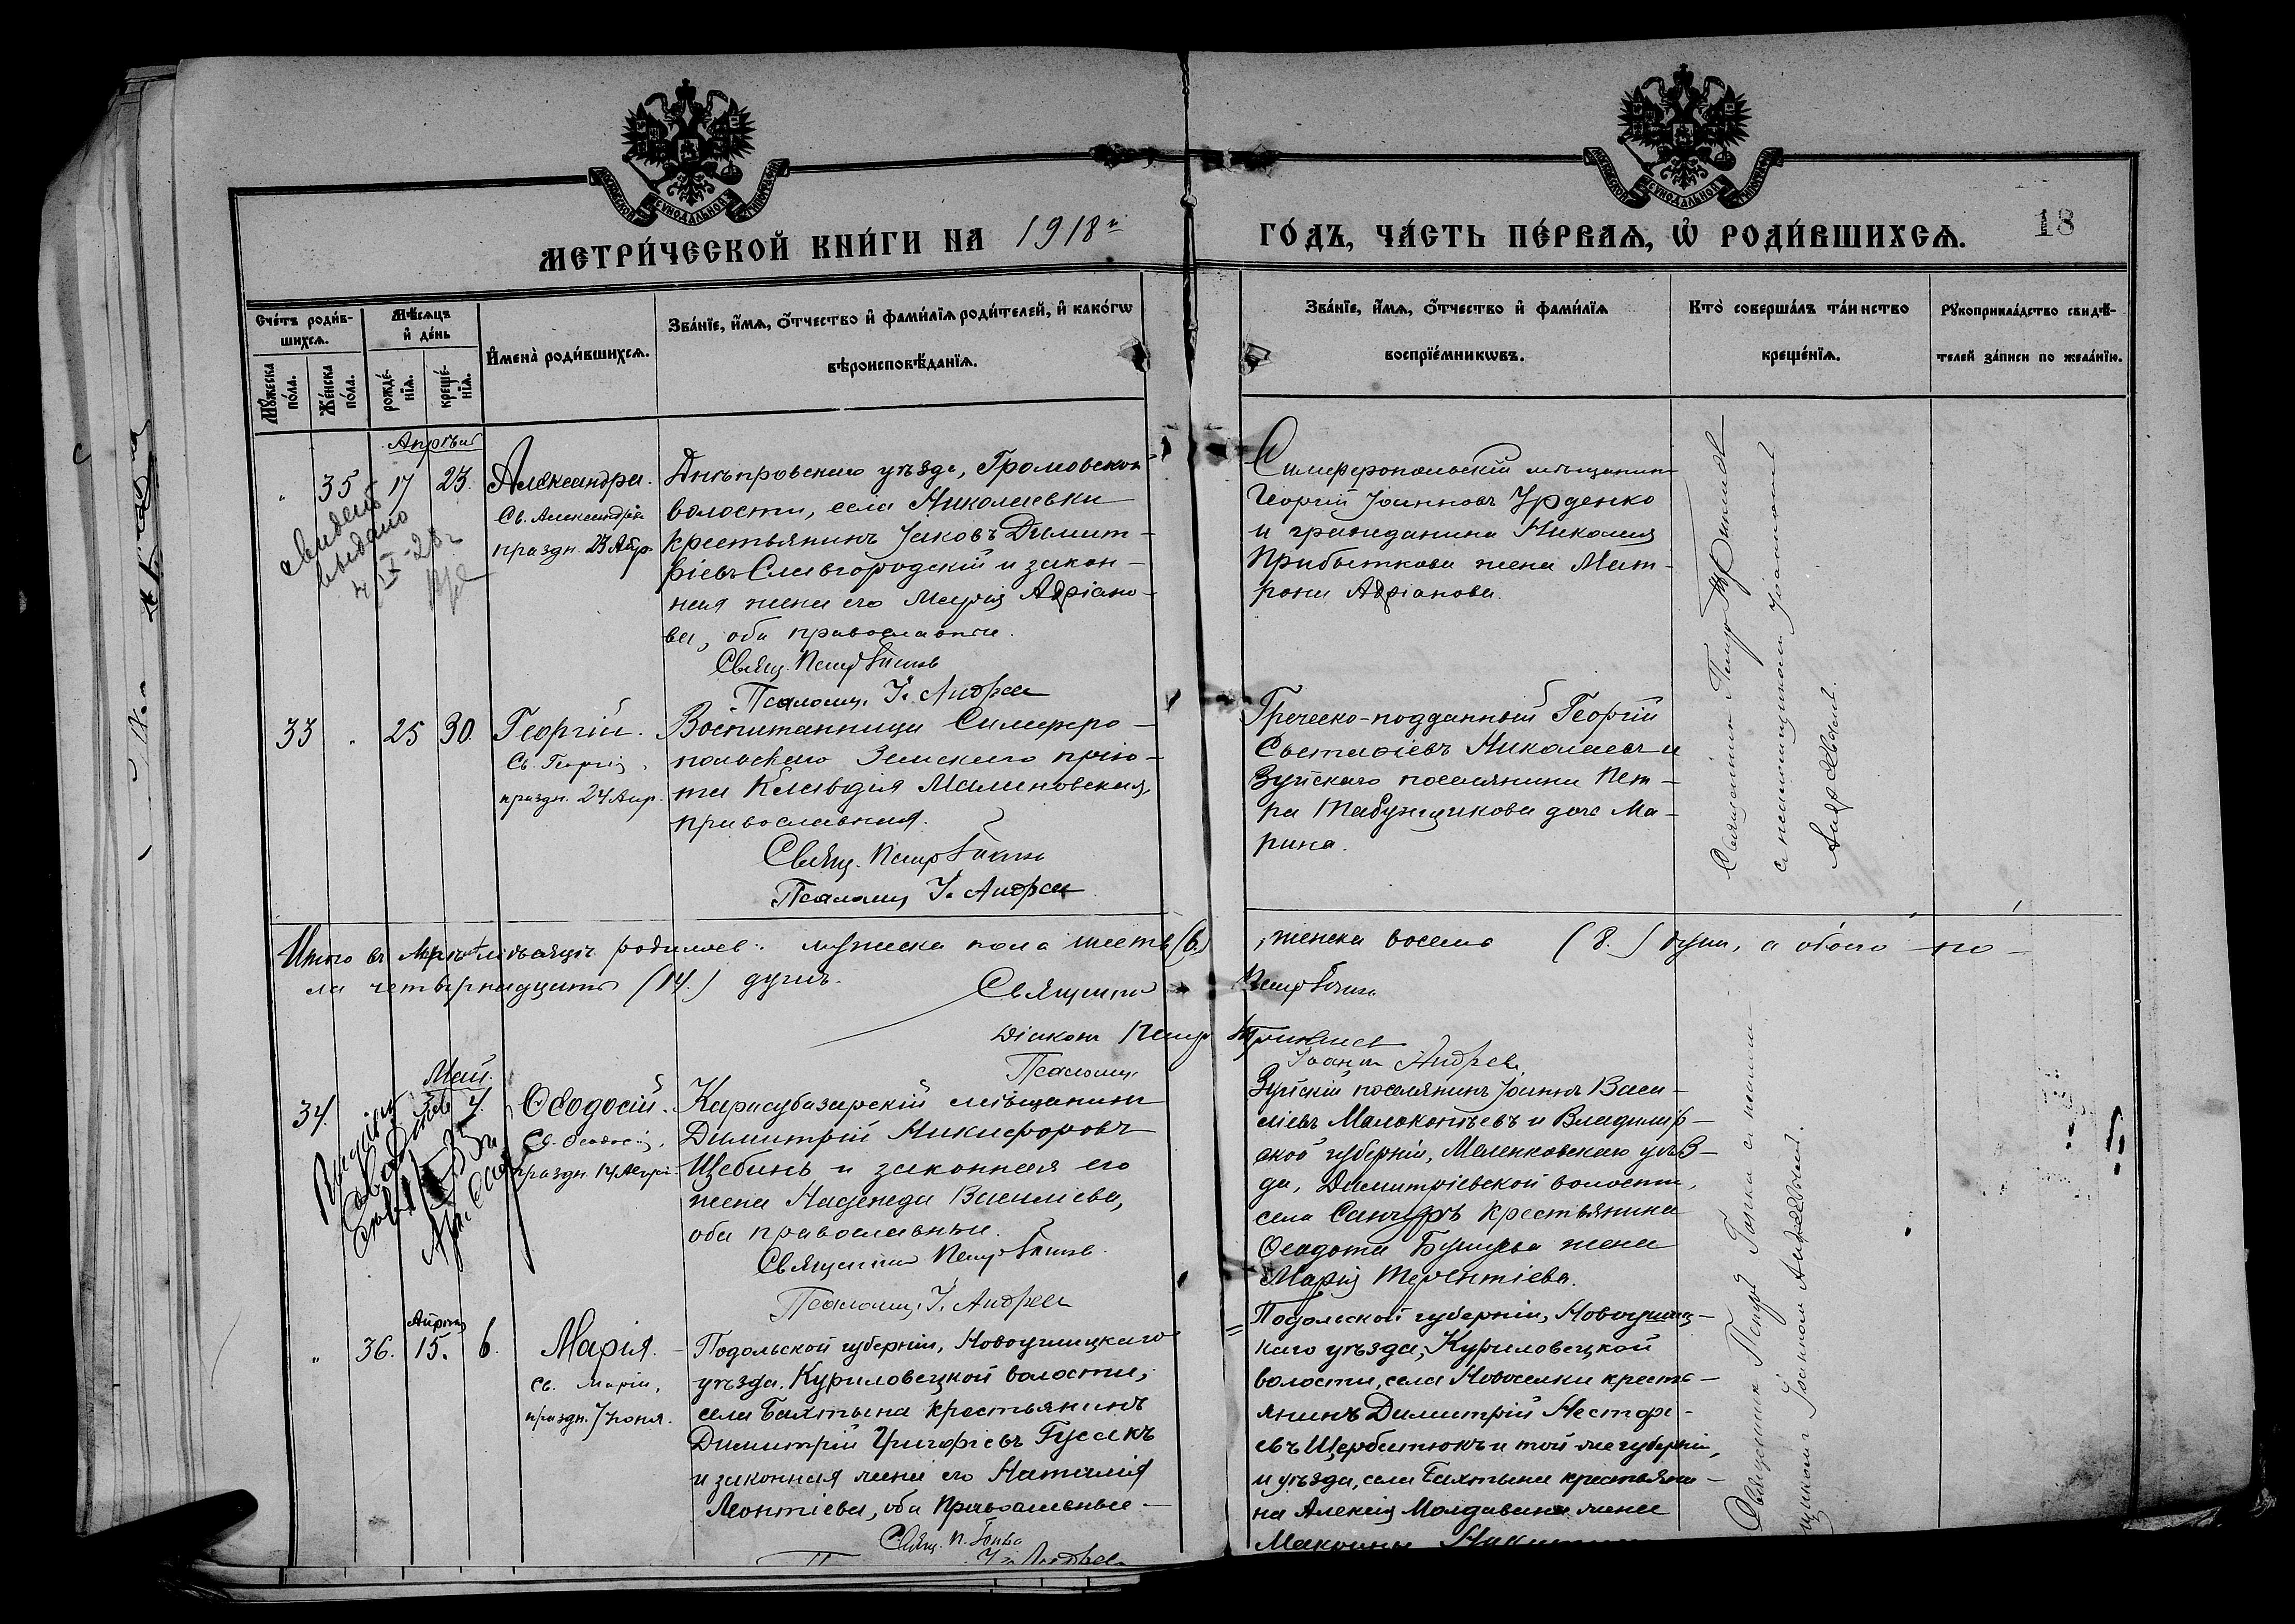 МЕТРИ́ЧЕСКОЙ КНИ́ГИ НА 1918й ГО́ДЪ, ЧА́СТЬ ПЕ́РВАѦ, Ѡ҆ РОДИ́ВШИХСѦ. 18
Сче́тъ роди́в-
шихсѧ.
Мꙋ́жеска по́ла.
Же́нска по́ла.
Мѣ́сѧцъ и҆ де́нь
рожде́-нїѧ.
креще́-нїѧ.
И҆мена̀ роди́вшихсѧ.
Зва́нїе, и҆́мѧ, ѻ҆́тчество и҆ фами́лїѧ роди́телей, и҆ како́гѡ
вѣроисповѣ́данїѧ.
Зва́нїе, и҆́мѧ, ѻ҆́тчество и҆ фами́лїѧ
воспрїе́мникѡвъ.
Кто̀ соверша́лъ та́инство
креще́нїѧ.
Рꙋкоприкла́дство свидѣ́-
телей за́писи по жела́нїю.
Апрѣль
35 17 23. Александра.
Св. Александры
праздн. 23 Апр.
выдано
Днѣпровскаго уѣзда, Громовской
волости, села Николаевки
крестьянинъ Іаковъ Димит-
ріевъ Славгородскій и закон-
ная жена его Марія Адріано-
ва, оба православные.
Свящ. Петръ
Псаломщ. І. Андреев
Симферопольскій мѣщанинъ
Георгій Іоанновъ Урденко
и гражданина Николая
Прибыткова жена Мат-
рона Адріанова.
33 25 30. Георгій.
Св. Георгія,
праздн. 24 Апр.
Воспитанница Симферо-
польскаго Земскаго прію-
та Клавдія Малиновская,
православная.
Свящ. Петръ
Псаломщ. І. Андреев
Греческо-подданный Георгій
Евстафіевъ Николаевъ и
Зуйскаго поселянина Пет-
ра Табунщикова дочь Ма-
рина.
Священникъ Петръ
съ псаломщикомъ Іоанномъ
Андреевымъ.
Итого въ Апрѣлѣ мѣсяцѣ родилось: мужеска пола шесть (6.), женска восемь (8.) душъ, а обоего по-
ла четырнадцать (14.) душъ.
Священникъ Петръ
Діаконъ Петръ
Псаломщ. Іоаннъ Андреев
Май.
34. 4. Ѳеодосій.
Св. Ѳеодосія,
Карасубазарскій мѣщанинъ
Димитрій Никифоровъ
Щебинь и законная его
жена Надежда Васильева,
оба православные.
Священникъ Петръ
Псаломщ. І. Андреев
Зуйскій поселянинъ Іоаннъ Васи-
ліевъ Малоконьевъ и Владимір-
ской губерніи, Меленковскаго уѣз-
да, Димитріевской волости,
села Санчуръ крестьянина
жена
Марія Терентіева.
Апрѣля
36. 15. 6. Марія.
Св. Маріи,
Подольской губерніи, Новоушицкаго
уѣзда, Куриловецкой волости,
села Бахтына крестьянинъ
Димитрій Григоріевъ Гусакъ
и законная жена его Наталія
Леонтіева, оба православные
Свящ. П.
І. Андреев
Подольской губерніи, Новоушиц-
каго уѣзда, Куриловецкой
волости, села Новоселки кресть-
янинъ Димитрій Несторі-
евъ Щербатюкъ и той же губерніи,
и уѣзда, села Бахтына крестьяни-
на Алексія Молдавана жена
Священникъ Петръ
Іоанномъ Андреевымъ.